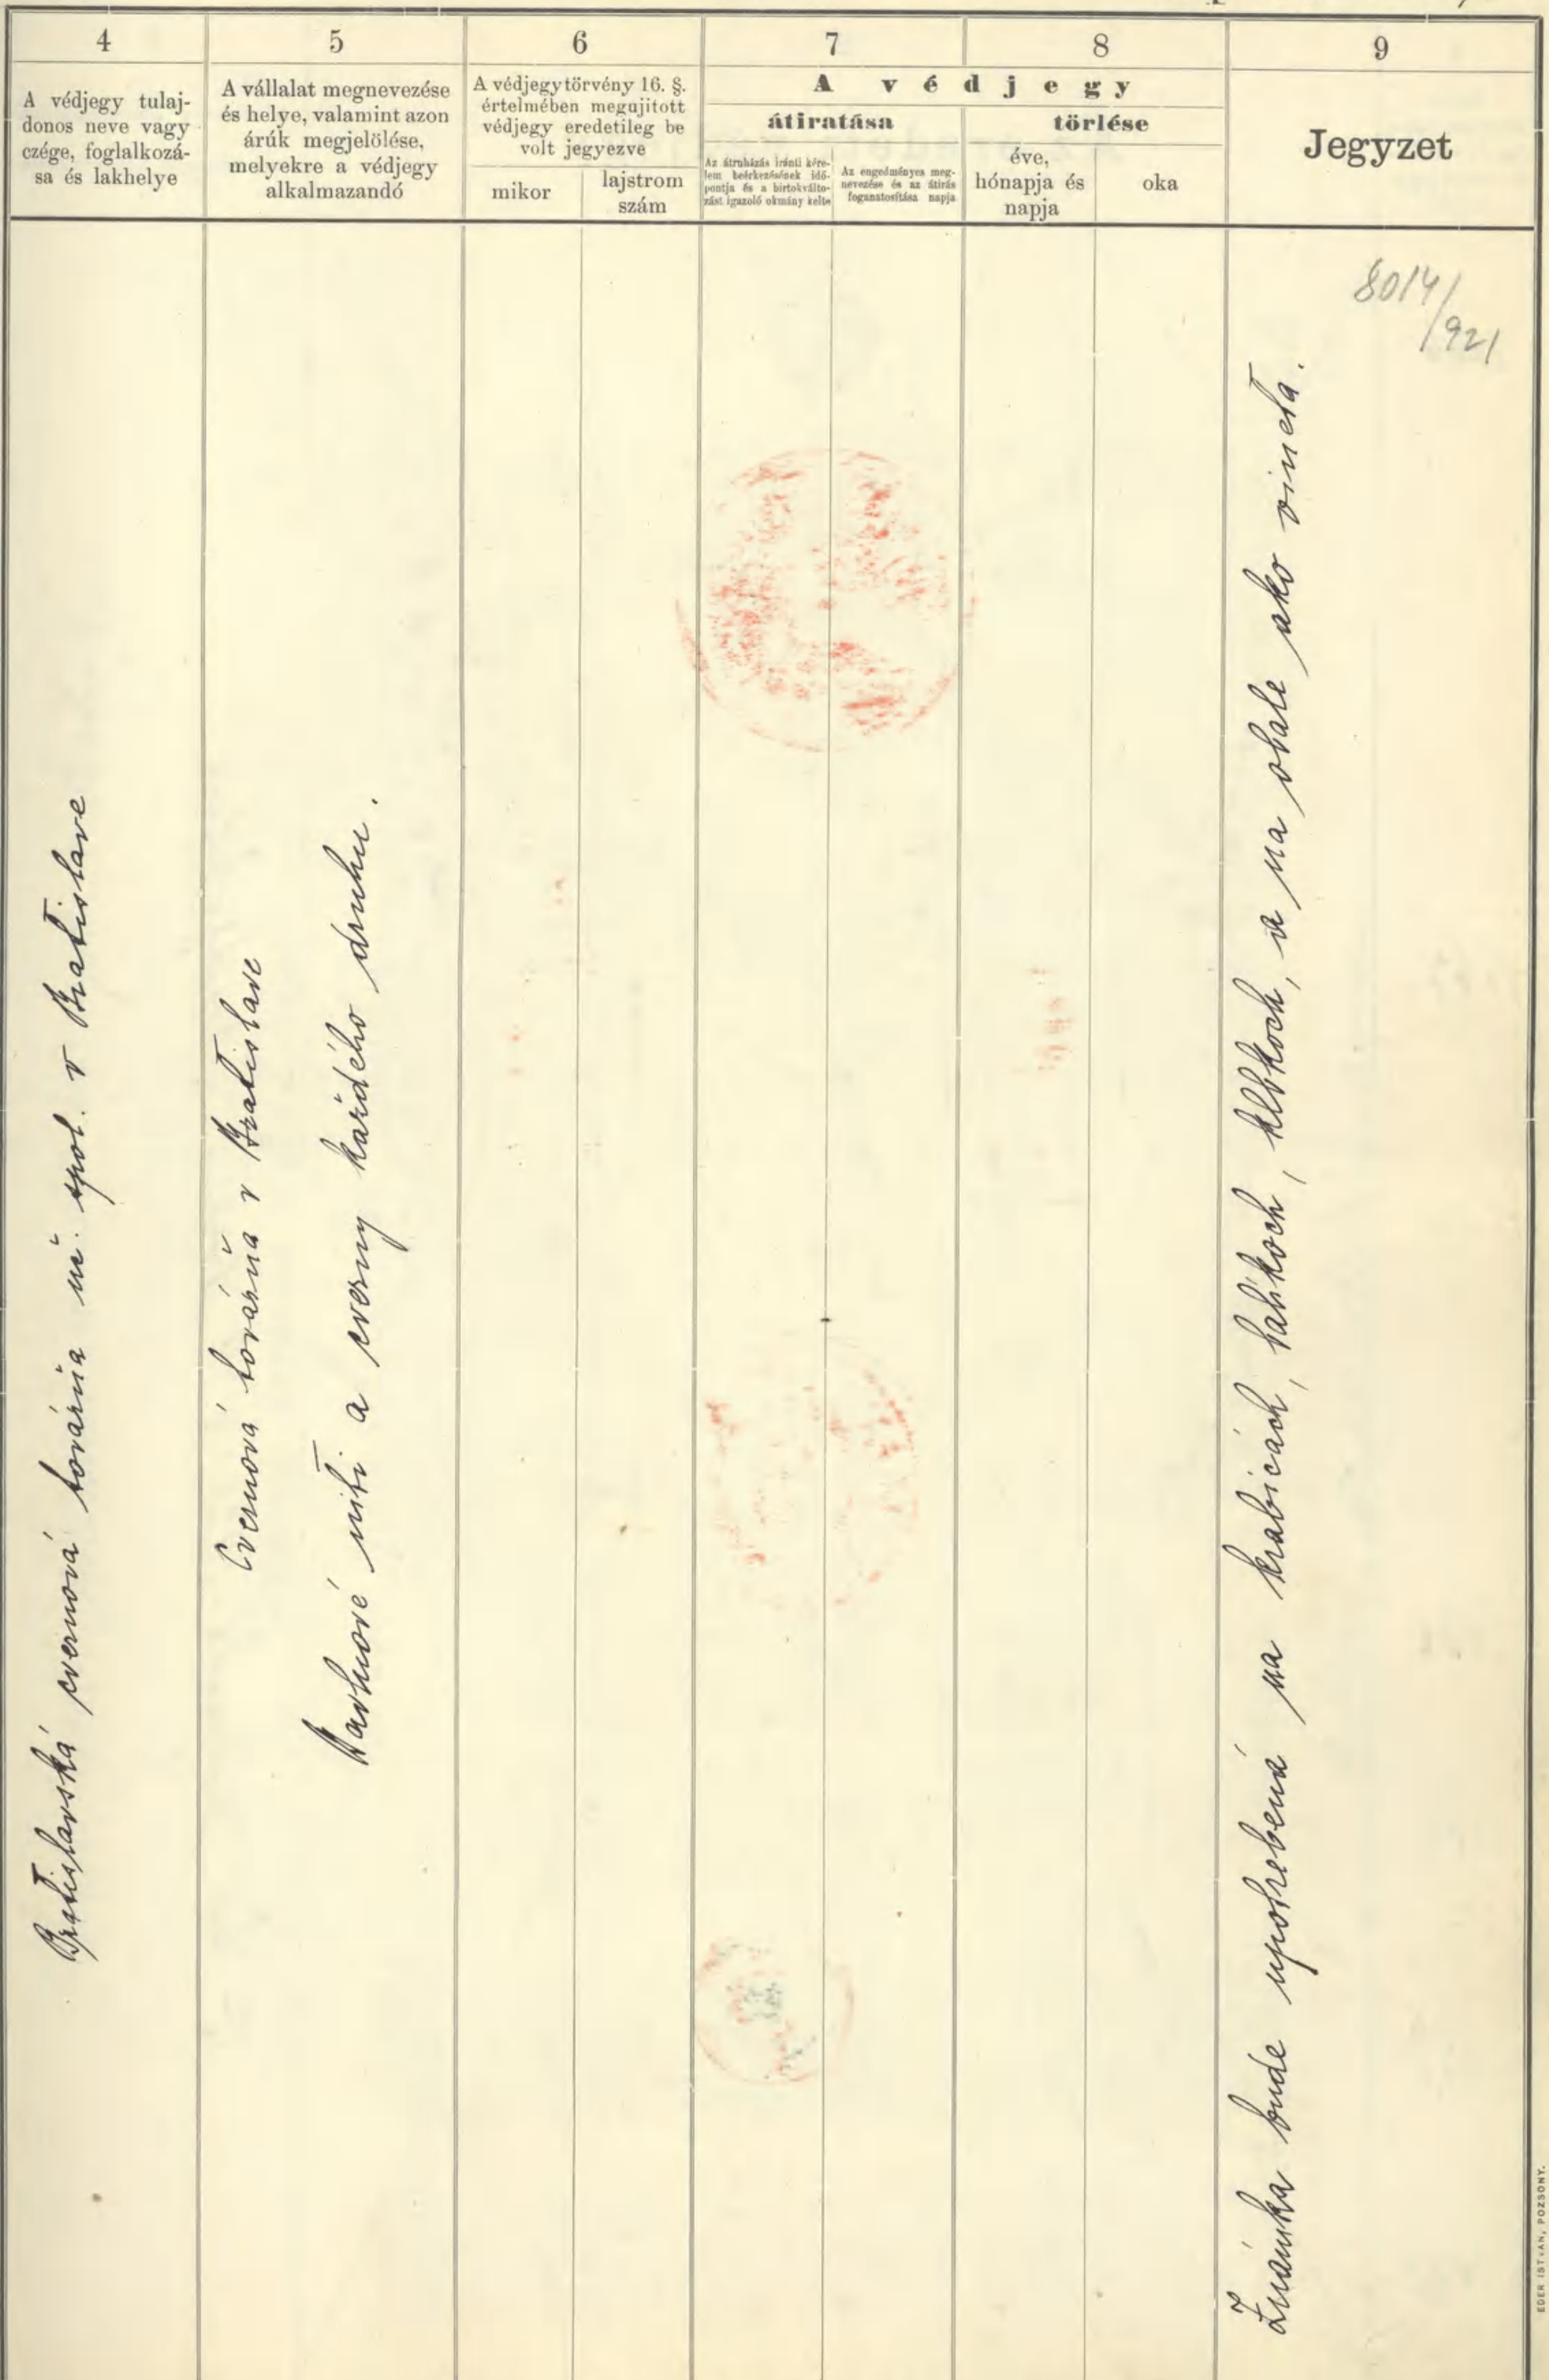 4
5
6
7
8
9
A védjegy tulaj-
donos neve vagy
czége, foglalkozá-
sa és lakhelye
A vállalat megnevezése
és helye, valamint azon
árúk megjelölése,
melyekre a védjegy
alkalmazandó
A védjegytörvény 16. §.
értelmében megujitott
védjegy eredetileg be
volt jegyezve
mikor
lajstrom
szám
A védjegy
átiratása
Az átruházás iránti kére-
lem beérkezésének idő-
pontja és a birtokválto-
zást igazoló okmány kelte
Az engedményes meg-
nevezése és az átirás
foganatosítása napja
törlése
éve,
hónapja és
napja
oka
Jegyzet
8014/
/921
Bratislavská cvernová továrňa uč. spol. v Bratislave
Cvernová továrňa v Bratislave
Bavlnové niti a cverny každého druhu.
Známka bude upotrebená na krabicách, balíkoch, klbkoch, a na obale ako vineta.
EDER ISTVÁN, POZSONY.